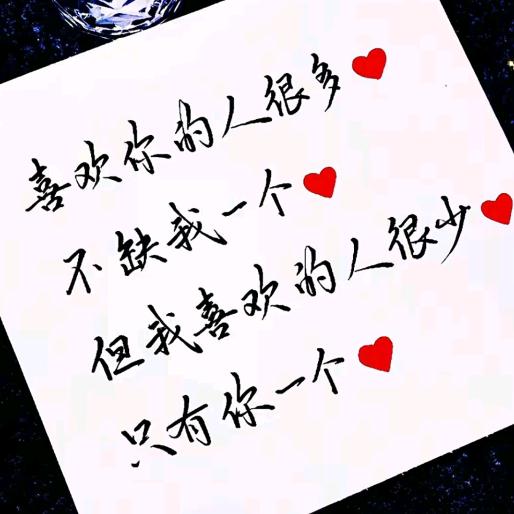 喜欢你的人很多❤
不缺我一个❤
但我喜欢的人很少❤
只有你一个❤